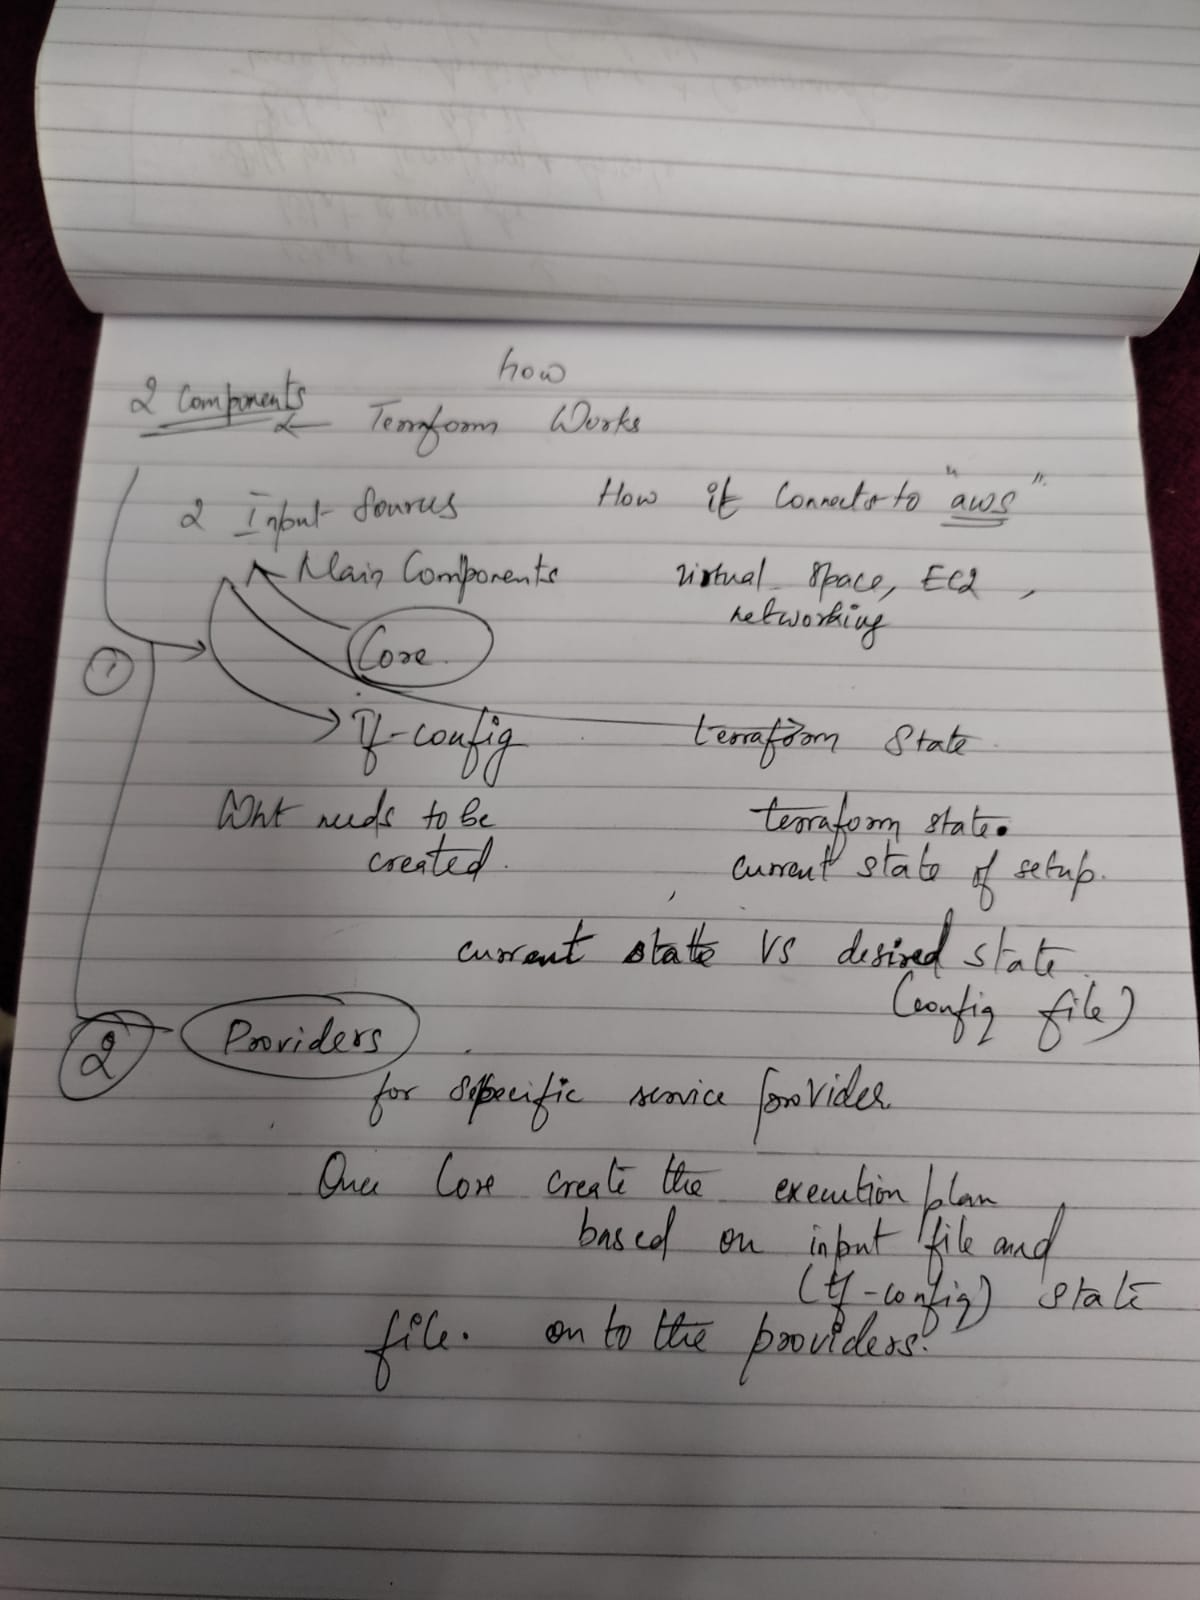 how
2 Components ← Terraform Works
2 Input Sources
How it Connects to "aws".
Main Components
virtual space, EC2,
networking
Core
1
tf-config
terraform State
Wht needs to be
created.
terraform state.
current state of setup.
current state VS desired state
(config file)
2 Providers
for specific service provider
Once Core create the execution plan
based on input file and
(tf-config) state
file. on to the providers.